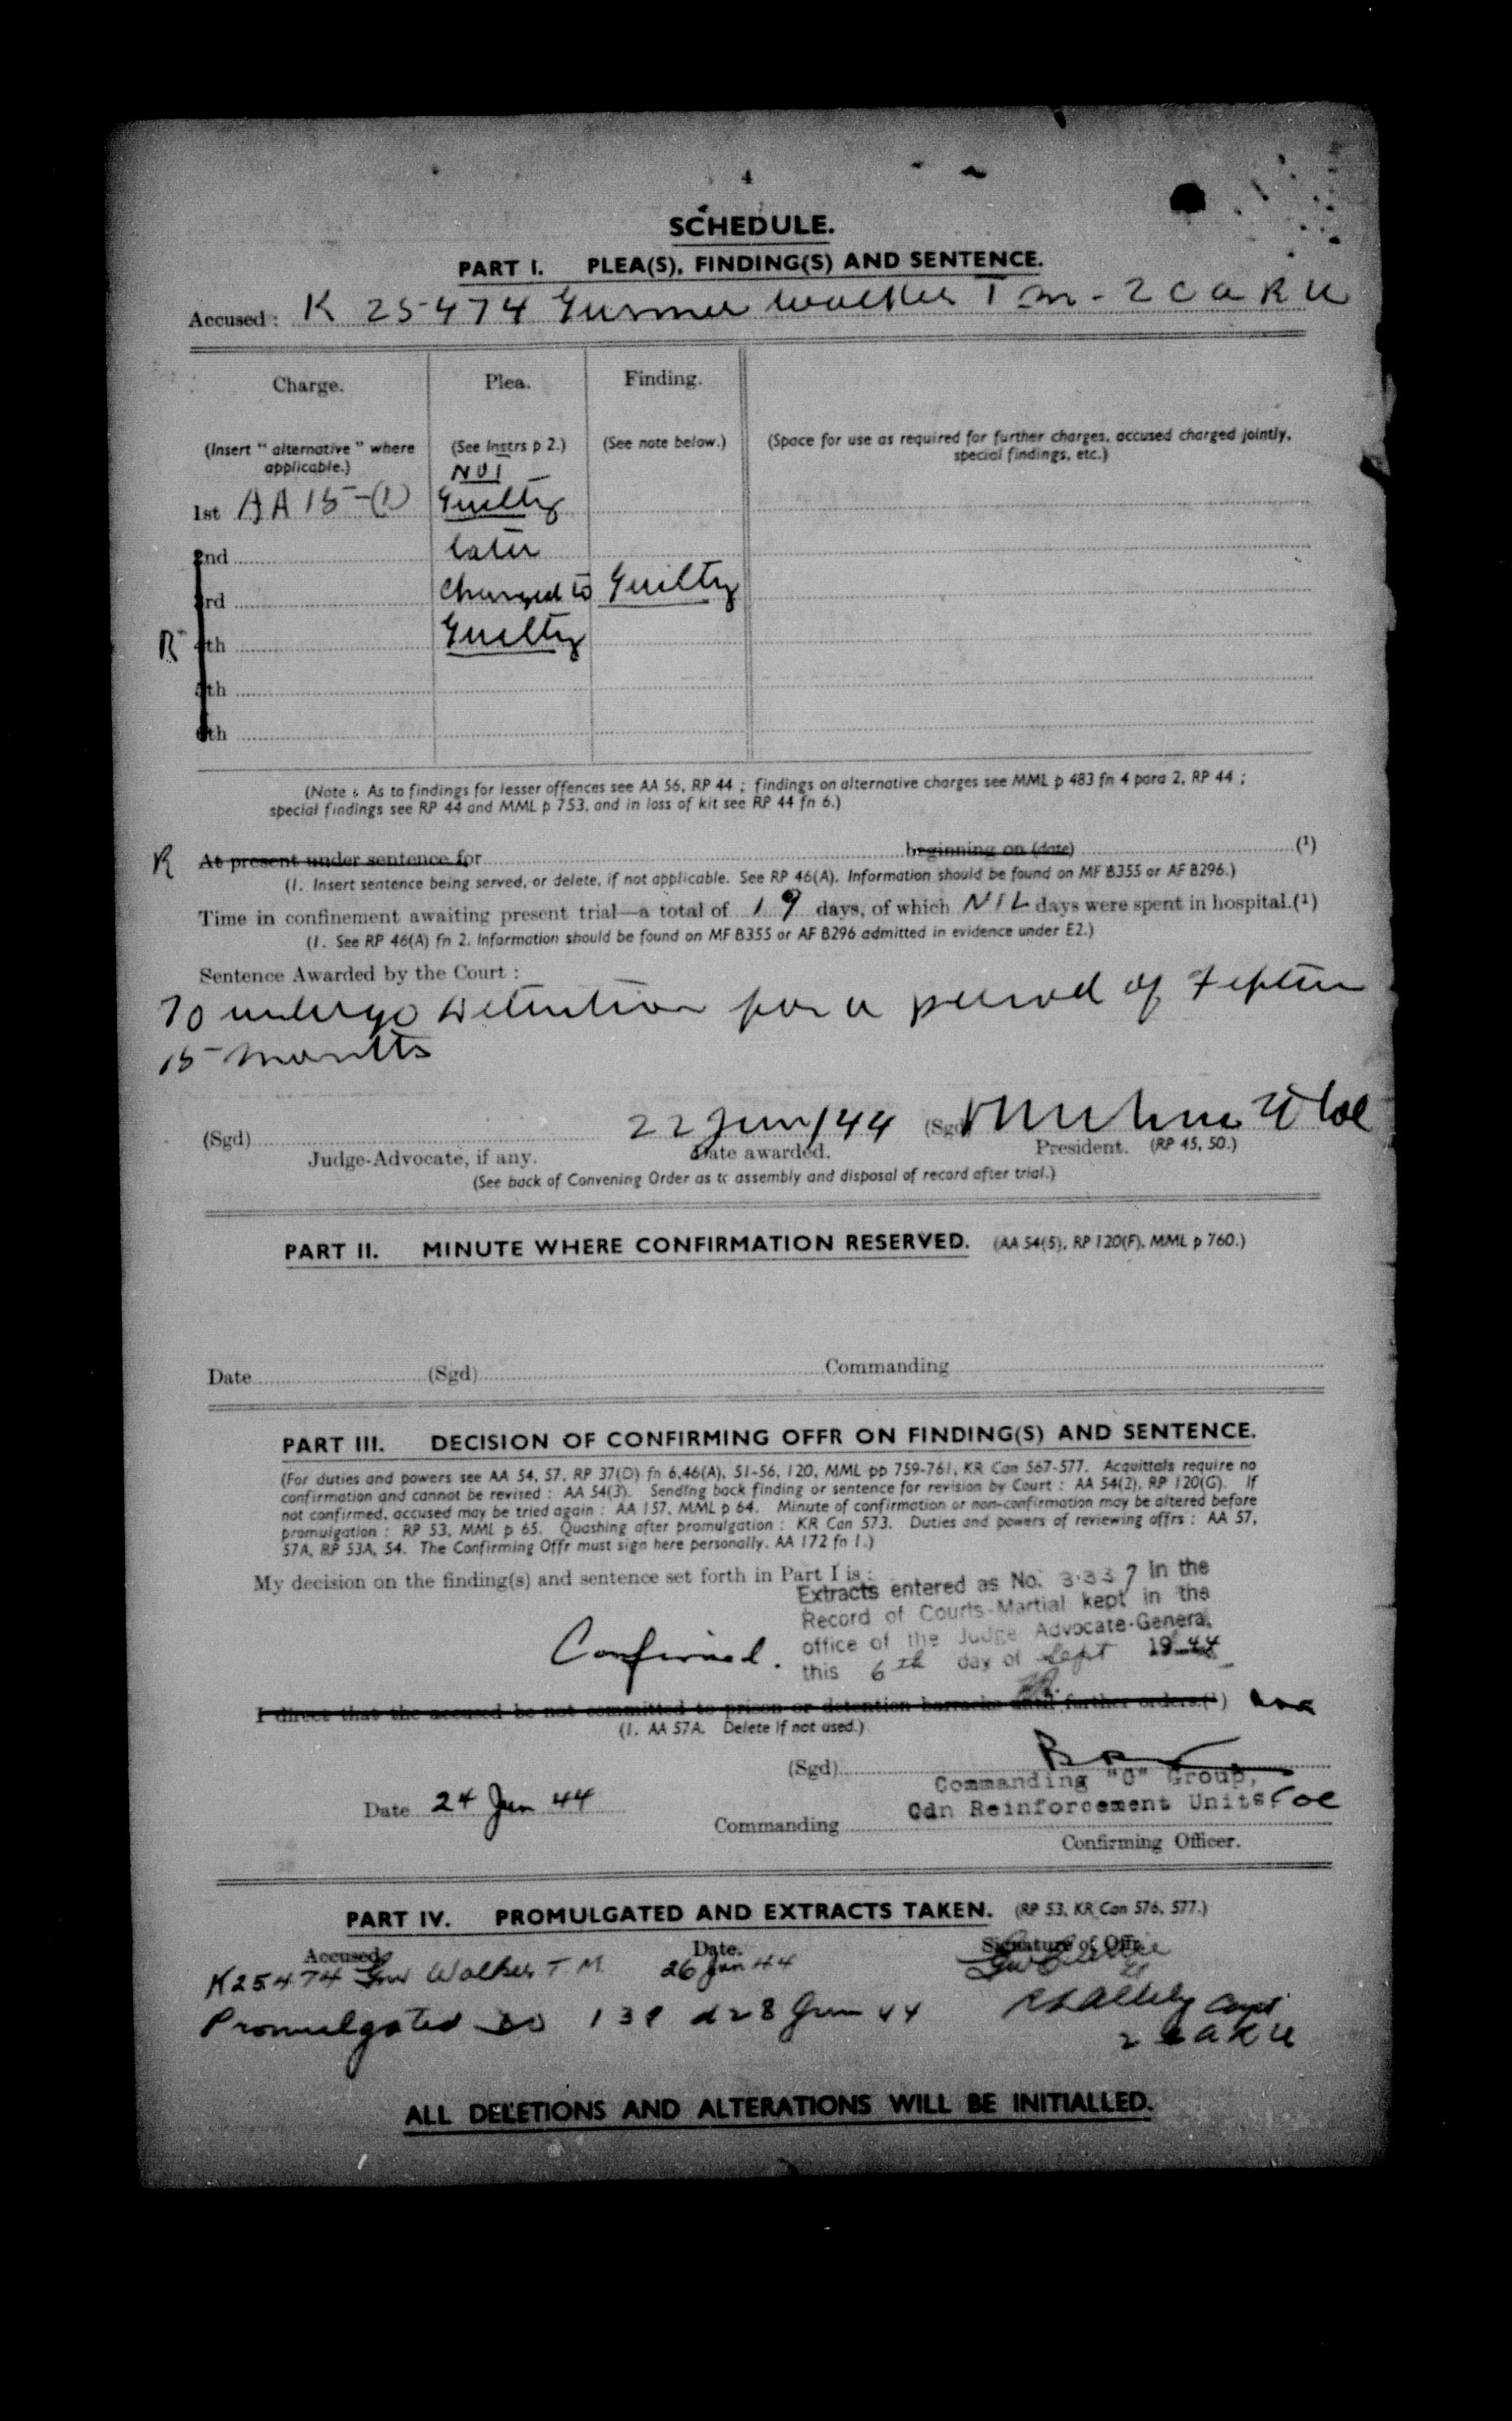 4
SCHEDULE.
PART I. PLEA(S), FINDING(S) AND SENTENCE.
Accused : K 25474 Gunner Walker T M - 2 C A R U
Charge. Plea. Finding.
(Insert " alternative " where applicable.) (See Instrs p 2.) (See note below.) (Space for use as required for further charges, accused charged jointly, special findings, etc.)
NOT
1st AA 15-(1) Guilty
2nd later
3rd changed to Guilty
R 4th Guilty
5th
6th
(Note : As to findings for lesser offences see AA 56, RP 44 ; findings on alternative charges see MML p 483 fn 4 para 2, RP 44 ;
special findings see RP 44 and MML p 753, and in loss of kit see RP 44 fn 6.)
R At present under sentence for beginning on (date) (1)
(1. Insert sentence being served, or delete, if not applicable. See RP 46(A). Information should be found on MF B355 or AF B296.)
Time in confinement awaiting present trial—a total of 19 days, of which NIL days were spent in hospital.(1)
(1. See RP 46(A) fn 2. Information should be found on MF B355 or AF B296 admitted in evidence under E2.)
Sentence Awarded by the Court :
To undergo Detention for a period of
15 months
(Sgd) 22 Jun/44 (Sgd) Lt Col
Judge-Advocate, if any. Date awarded. President. (RP 45, 50.)
(See back of Convening Order as to assembly and disposal of record after trial.)
PART II. MINUTE WHERE CONFIRMATION RESERVED. (AA 54(5), RP 120(F), MML p 760.)
Date (Sgd) Commanding
PART III. DECISION OF CONFIRMING OFFR ON FINDING(S) AND SENTENCE.
(For duties and powers see AA 54, 57, RP 37(D) fn 6,46(A), 51-56, 120, MML pp 759-761, KR Can 567-577. Acquittals require no
confirmation and cannot be revised : AA 54(3). Sending back finding or sentence for revision by Court : AA 54(2), RP 120(G). If
not confirmed, accused may be tried again : AA 157, MML p 64. Minute of confirmation or non-confirmation may be altered before
promulgation : RP 53, MML p 65. Quashing after promulgation : KR Can 573. Duties and powers of reviewing offrs : AA 57,
57A, RP 53A, 54. The Confirming Offr must sign here personally. AA 172 fn 1.)
My decision on the finding(s) and sentence set forth in Part I is :
Extracts entered as No. 3337 in the
Record of Courts-Martial kept in the
office of the Judge Advocate-General
this 6th day of Sept 1944
Confirmed.
I direct that the accused be not committed to prison or detention barracks until further orders.(1)
(1. AA 57A. Delete if not used.)
(Sgd)
Commanding "C" Group,
Cdn Reinforcement Units. Col
Date 24 Jun 44
Commanding
Confirming Officer.
PART IV. PROMULGATED AND EXTRACTS TAKEN. (RP 53, KR Can 576, 577.)
Accused. Date. Signature of Offr.
K25474 Gnr Walker T. M. 26 Jun 44
Promulgated DO 139 d 28 Jun 44 Capt
2 CARU
ALL DELETIONS AND ALTERATIONS WILL BE INITIALLED.